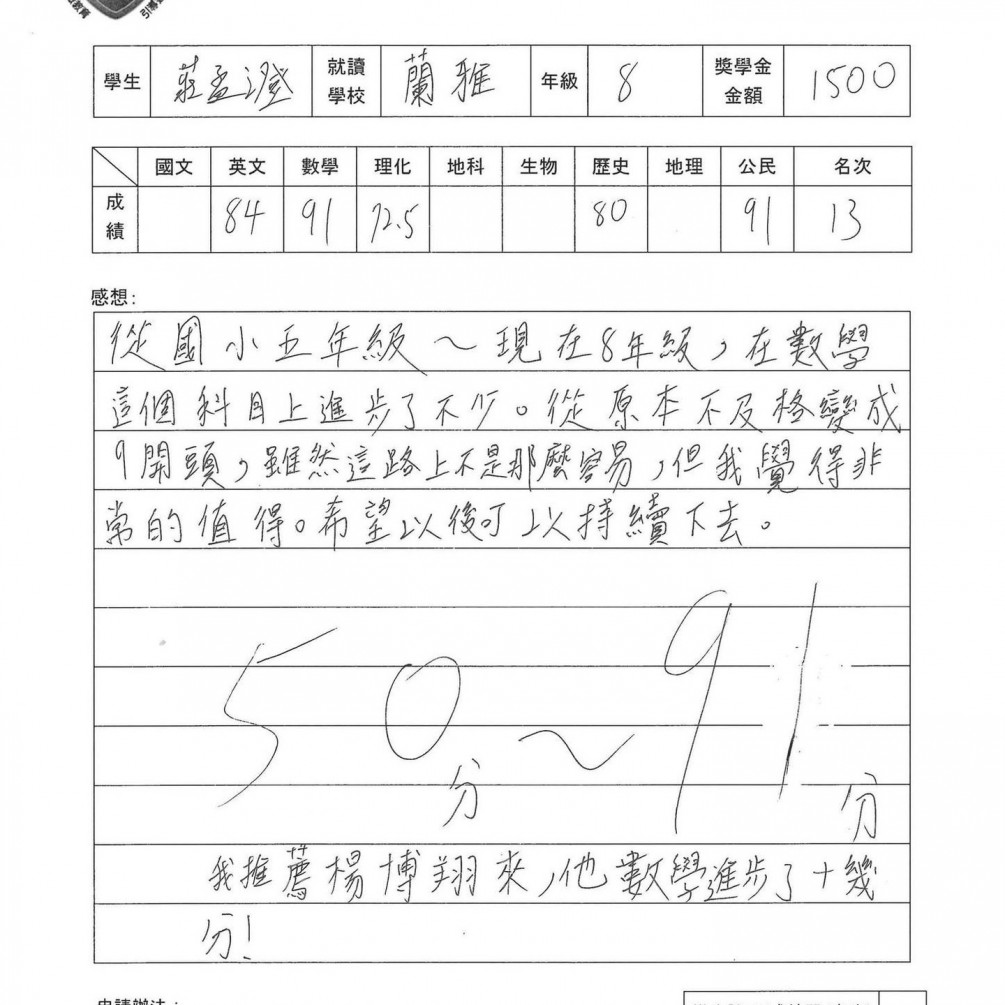 學生 莊孟澄 就讀學校 蘭雅 年級 8 獎學金金額 1500
國文 英文 數學 理化 地科 生物 歷史 地理 公民 名次
成績 84 91 72.5 80 91 13
感想:
從國小五年級～現在8年級，在數學
這個科目上進步了不少。從原本不及格變成
9開頭，雖然這路上不是那麼容易，但我覺得非
常的值得。希望以後可以持續下去。
50分～91分
我推薦楊博翔來，他數學進步了十幾
分!
申請辦法：